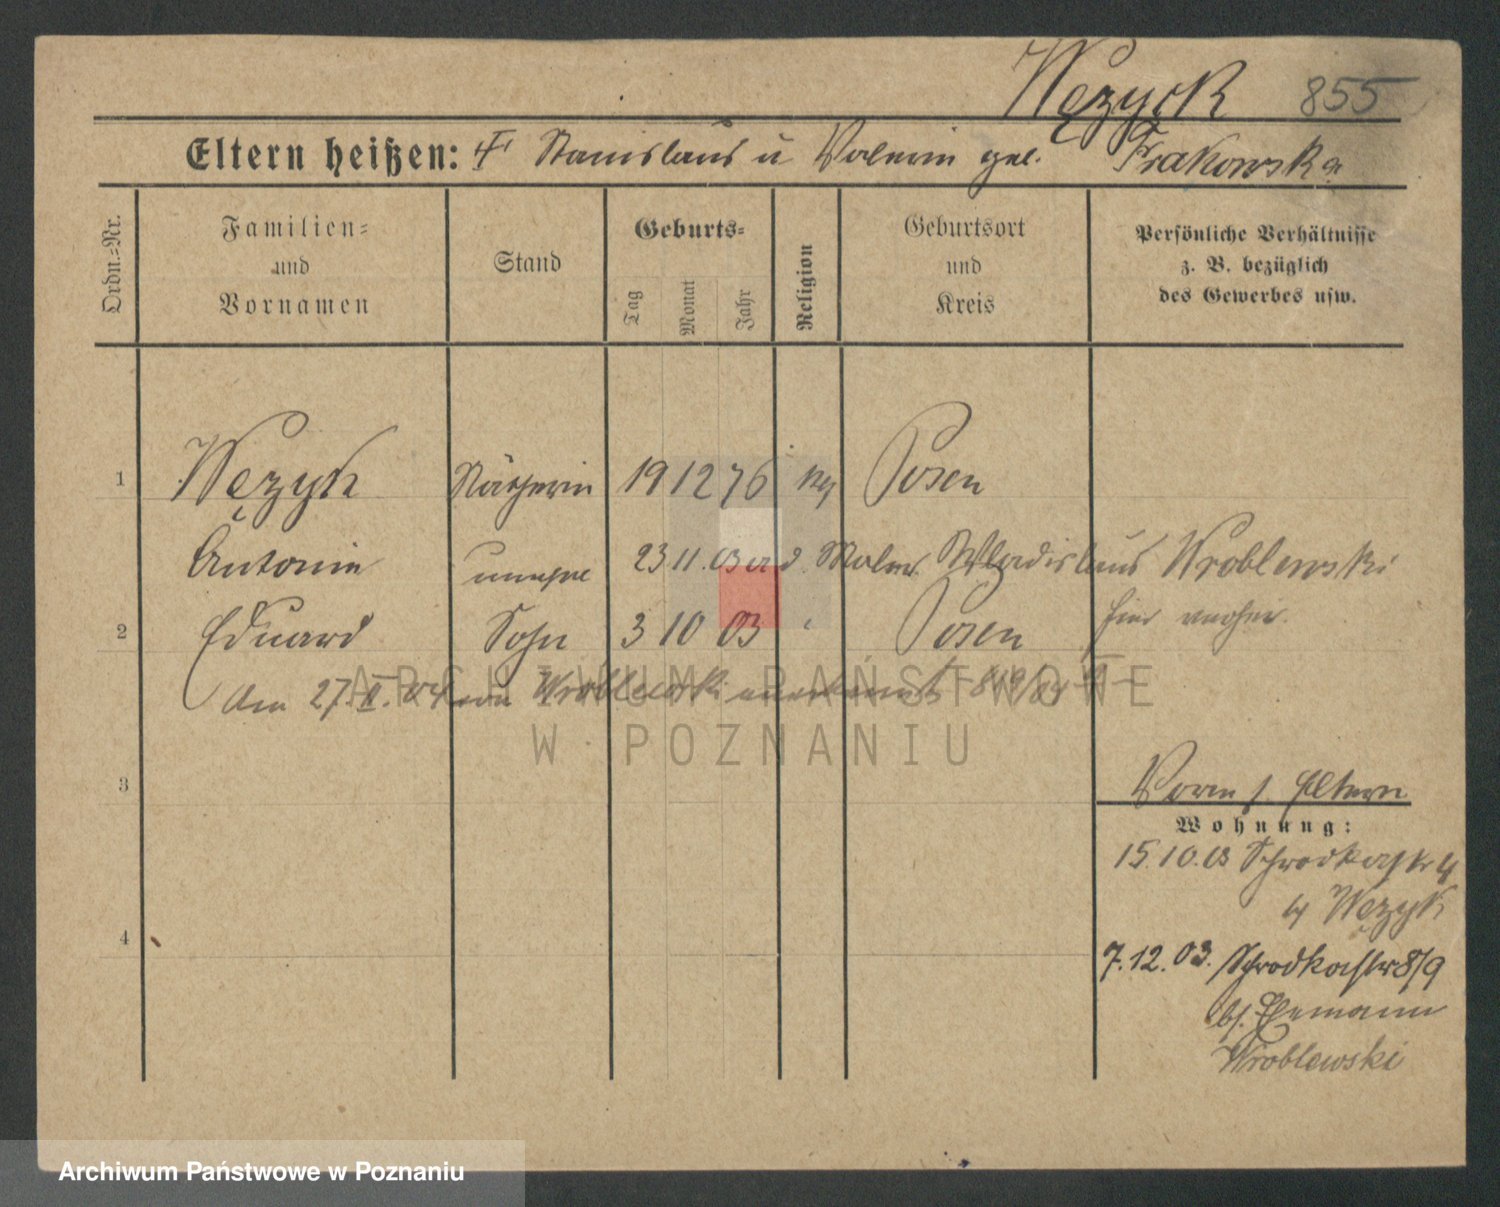 Węzyck 855
Eltern heißen: Stanislaus u Valerin geb. Frakowska
Ordn.-Nr.
Familien-
und
Vornamen
Stand
Geburts-
Tag
Monat
Jahr
Religion
Geburtsort
und
Kreis
Persönliche Verhältnisse
z. B. bezüglich
des Gewerbes usw.
1 Węzyk Nätherin 19 12 76 Posen
Antonie 23 11. 03 Maler Wladislaus Wroblewski
hier
2 Eduard Sohn 3 10 03 Posen
Am 27. II. 04 von Wroblewski anerkannt
3
Eltern
Wohnung:
15.10.03 Schrodkastr 4
b/ Węzyk
4
7.12.03. Schrodkastr 8/9
b/. Ehemann
Wroblewski
ARCHIWUM PAŃSTWOWE
W POZNANIU
Archiwum Państwowe w Poznaniu